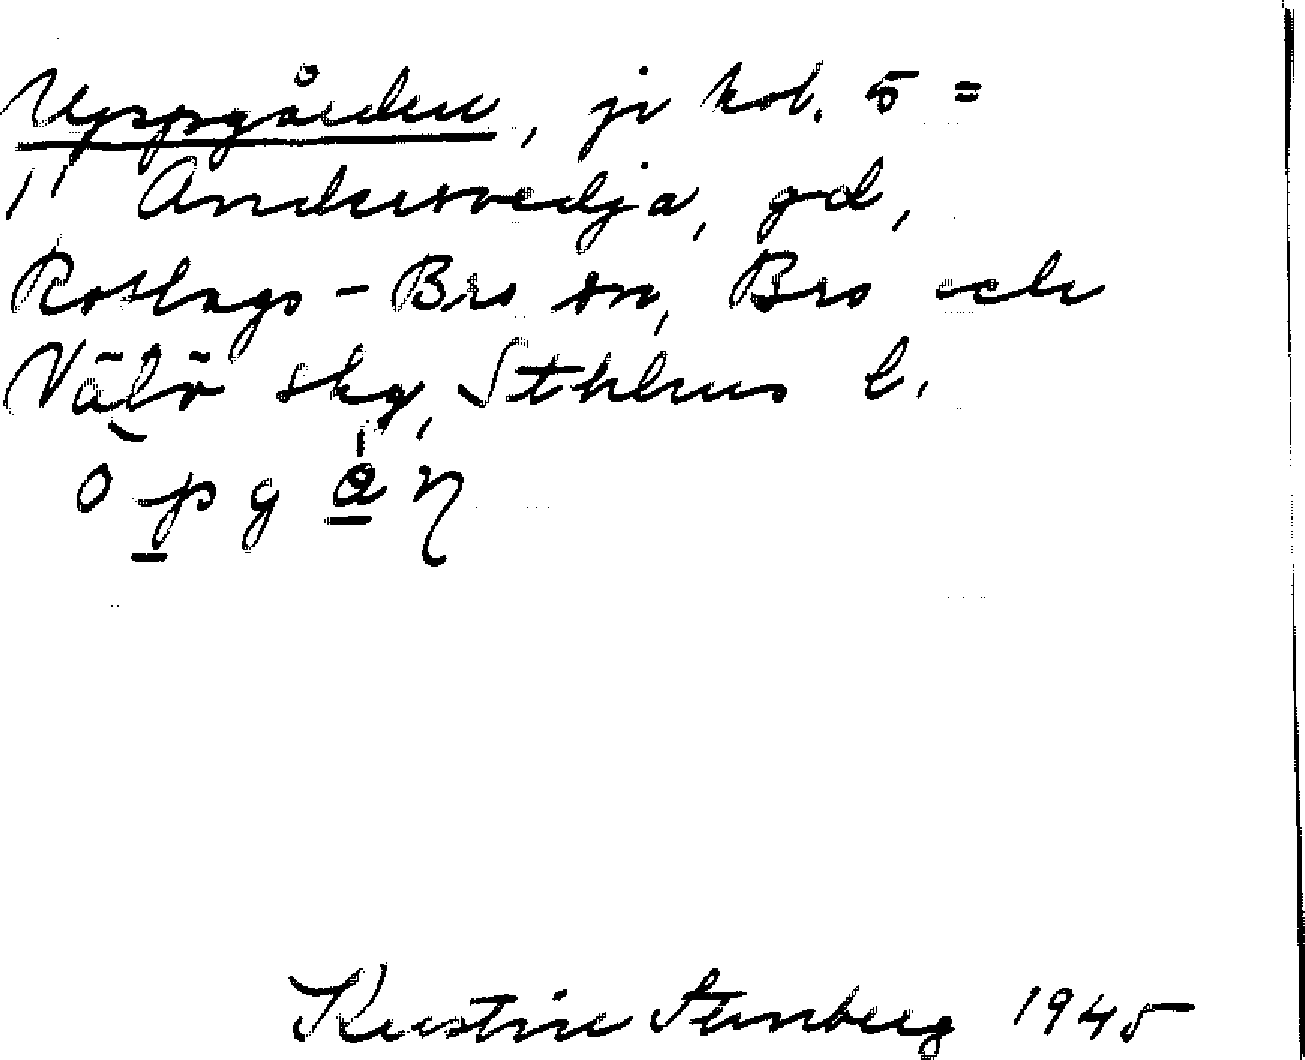 Uppgården, jr kol. 5 =
11 Andersvedja, gd,
Roslags-Bro sn, Bro och
Vätö skg, Sthlms l.
o p g å n
Kerstin Stenberg 1945